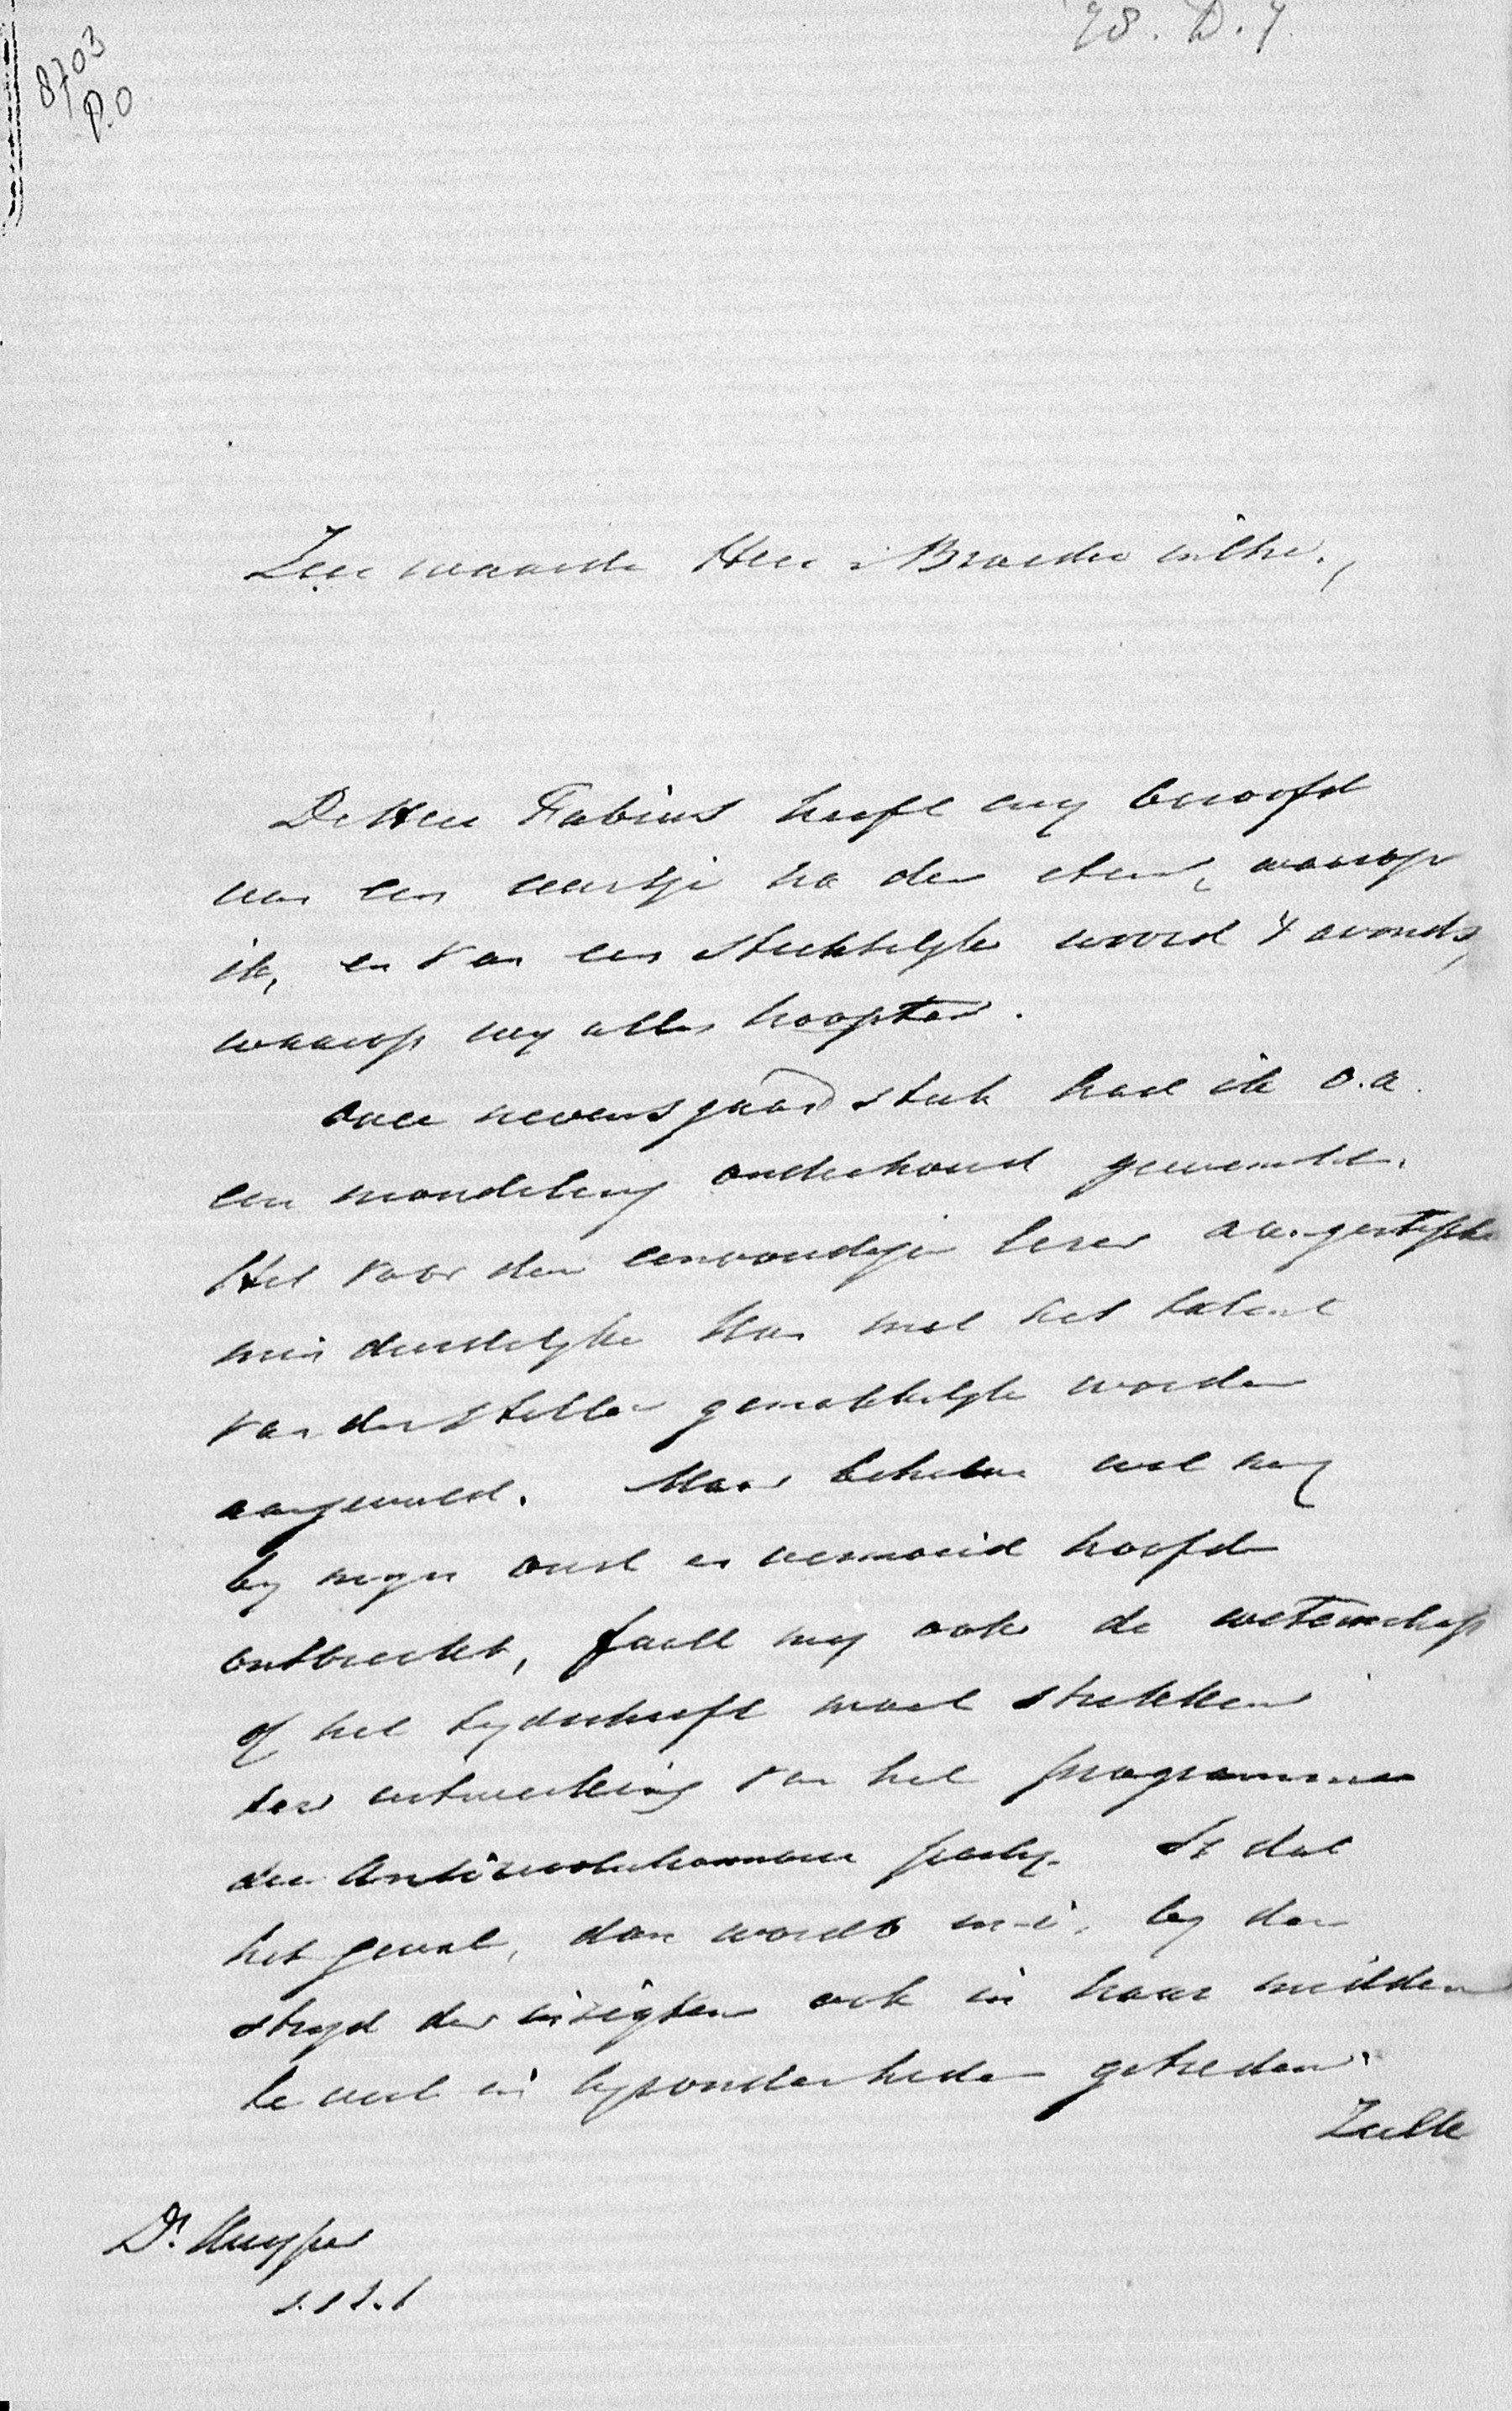 8703
P.O
Zeer waarde Heer & Broeder in Chr.,
De Heer Fabius heeft my beroofd
van een uurtje na den eten, waarop
ik, en van een stichtelyk woord 's avonds,
waarop wy allen hoopten.
Over nevensgaand stuk had ik o.a.
een mondeling onderhoud gewenscht.
Het voor den eenvoudigen lezer
min duidelyke kan met het talent
van den steller gemakkelyk worden
aangevuld. Maar behalve veel nog
by myn oud en vermoeid hoofd
ontbreekt, faalt my ook de wetenschap
of het tydschrift moet strekken
ter ontwikkeling van het programma
der Antirevolutionnaire party. Is dat
het geval, dan wordt m.i. by den
stryd der inzigten ook in haar midden
te veel in byzonderheden getreden.
Zulk
Dr. Kuyper